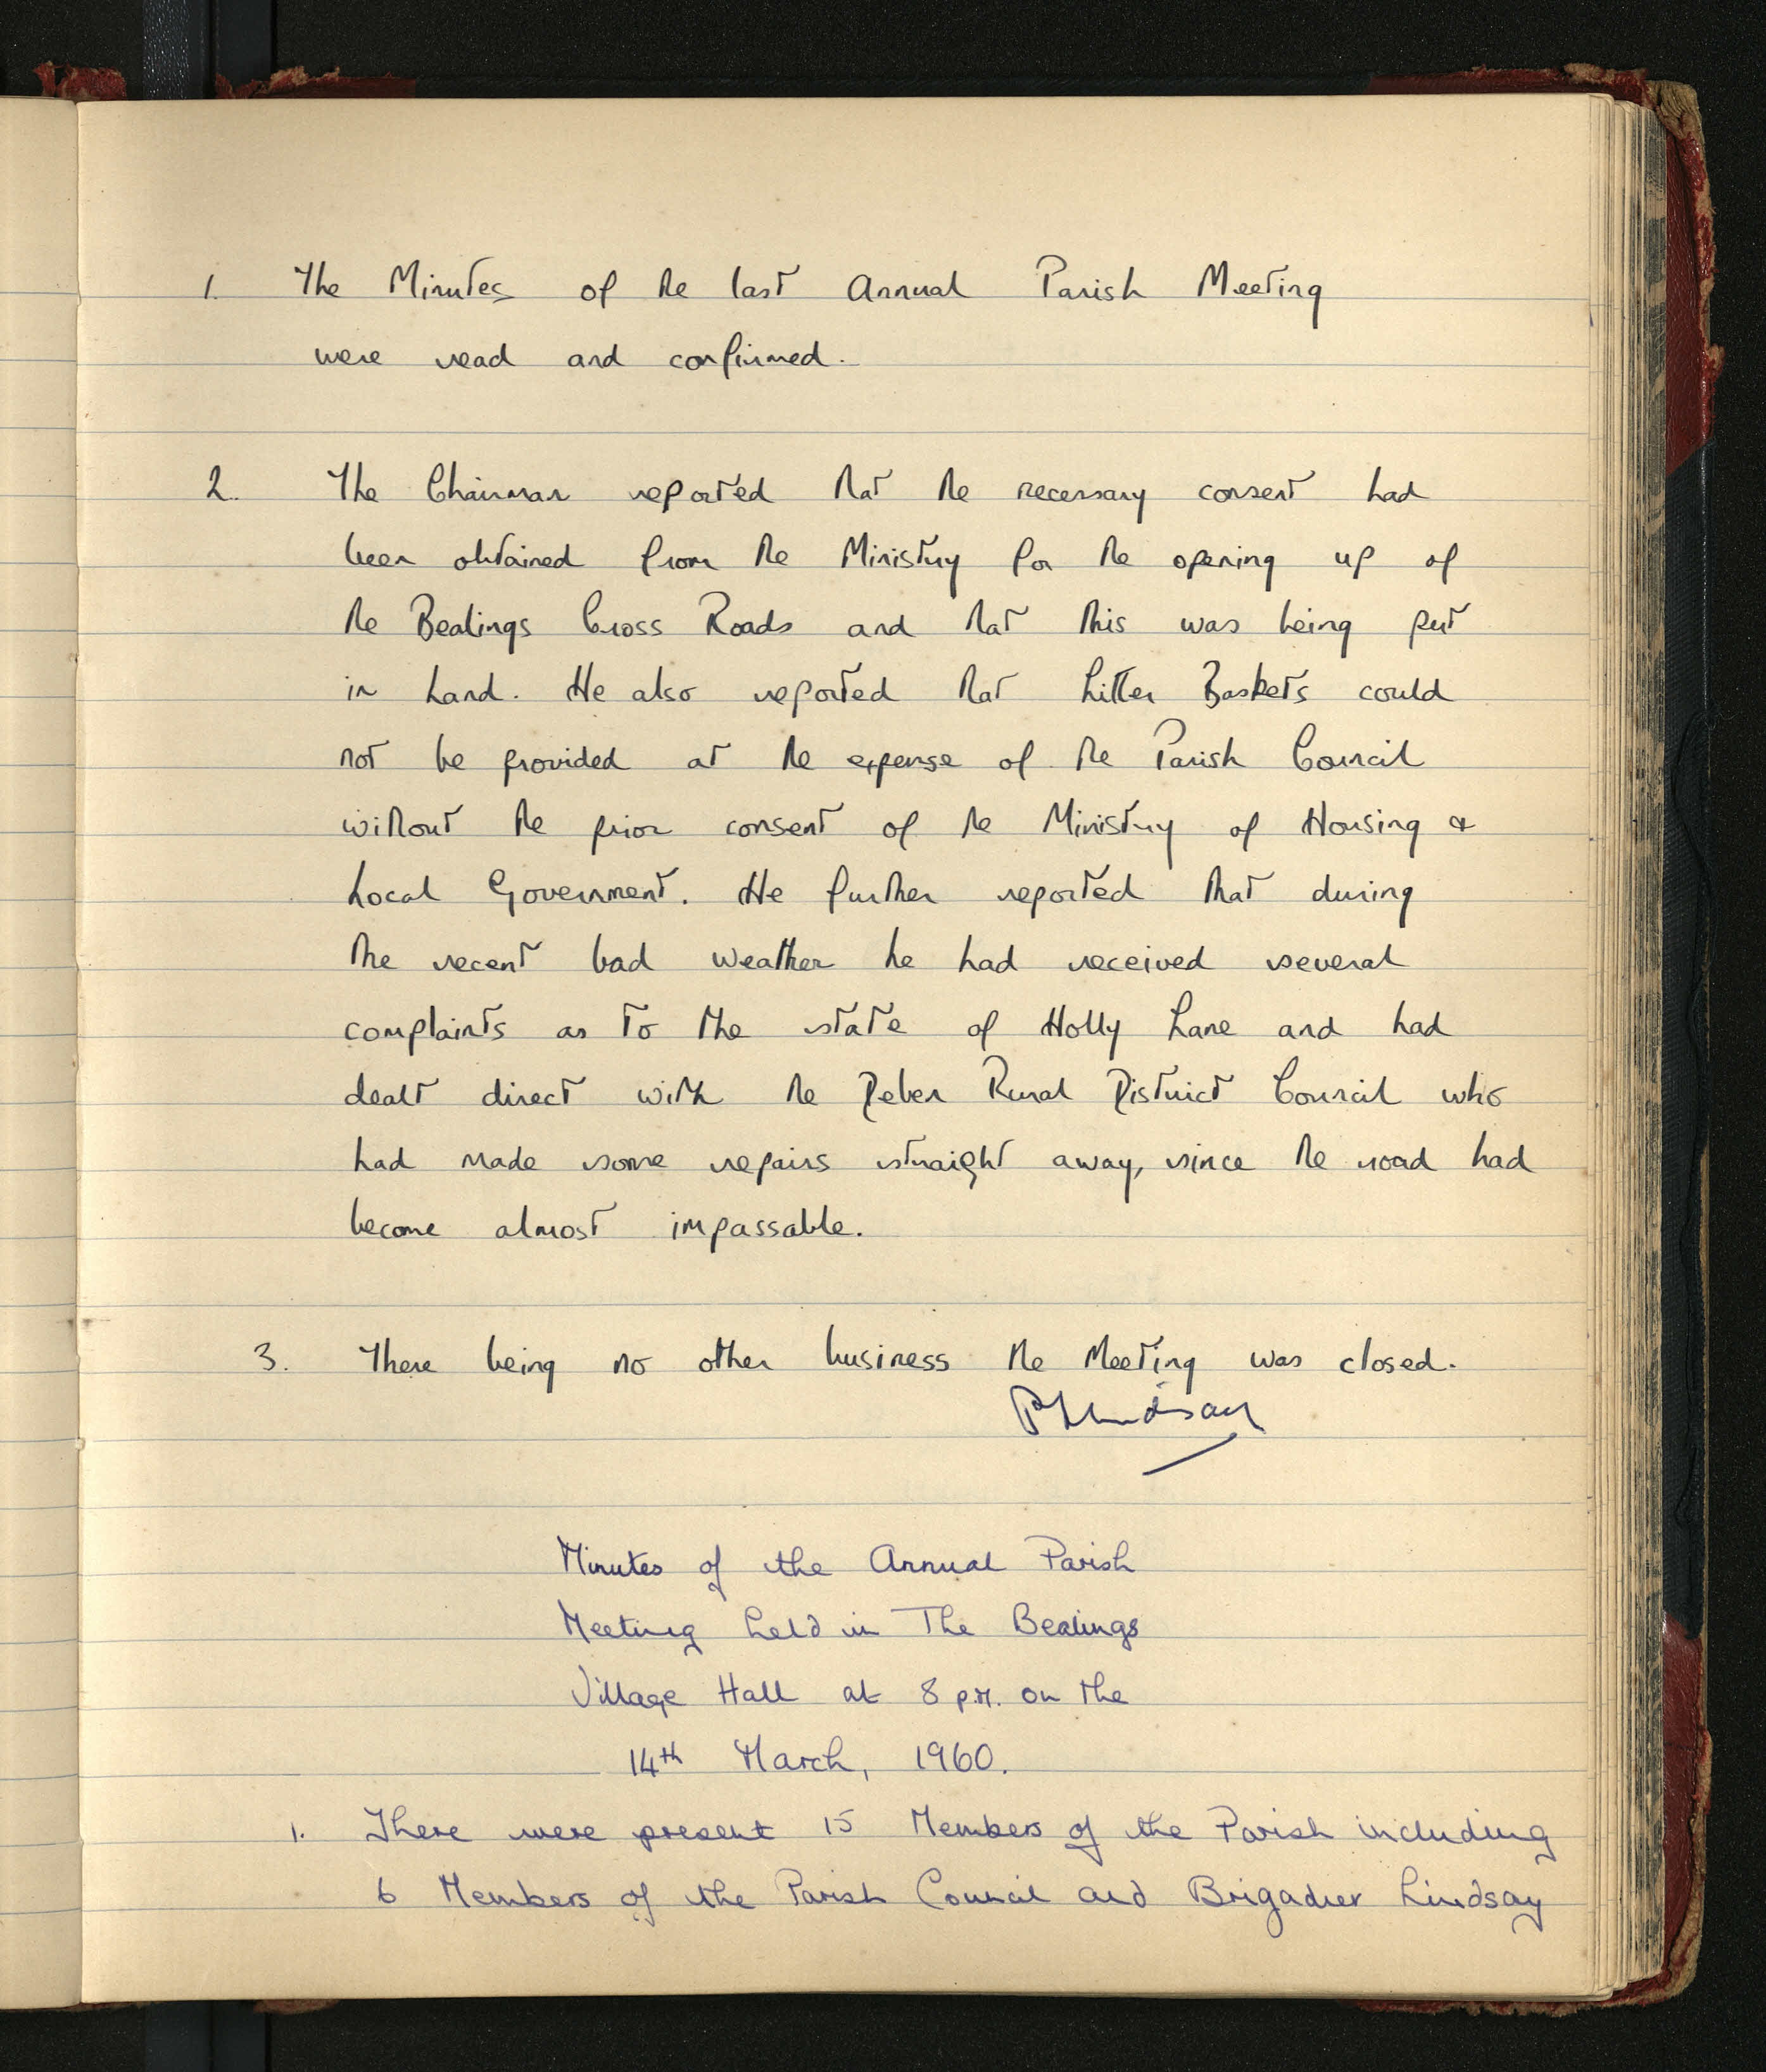 1. The Minutes of the last Annual Parish Meeting
were read and confirmed.
2. The Chairman reported that the necessary consent had
been obtained from the Ministry for the opening up of
the Bealings Cross Roads and that this was being put
in hand. He also reported that Litter Baskets could
not be provided at the expense of the Parish Council
without the prior consent of the Ministry of Housing &
Local Government. He further reported that during
the recent bad weather he had received several
complaints as to the state of Holly Lane and had
dealt direct with the Deben Rural District Council who
had made some repairs straight away, since the road had
become almost impassable.
3. There being no other business the Meeting was closed.
P Lindsay
Minutes of the Annual Parish
Meeting held in The Bealings
Village Hall at 8 p.m. on the
14th March, 1960.
1. There were present 15 Members of the Parish including
6 Members of the Parish Council and Brigadier Lindsay